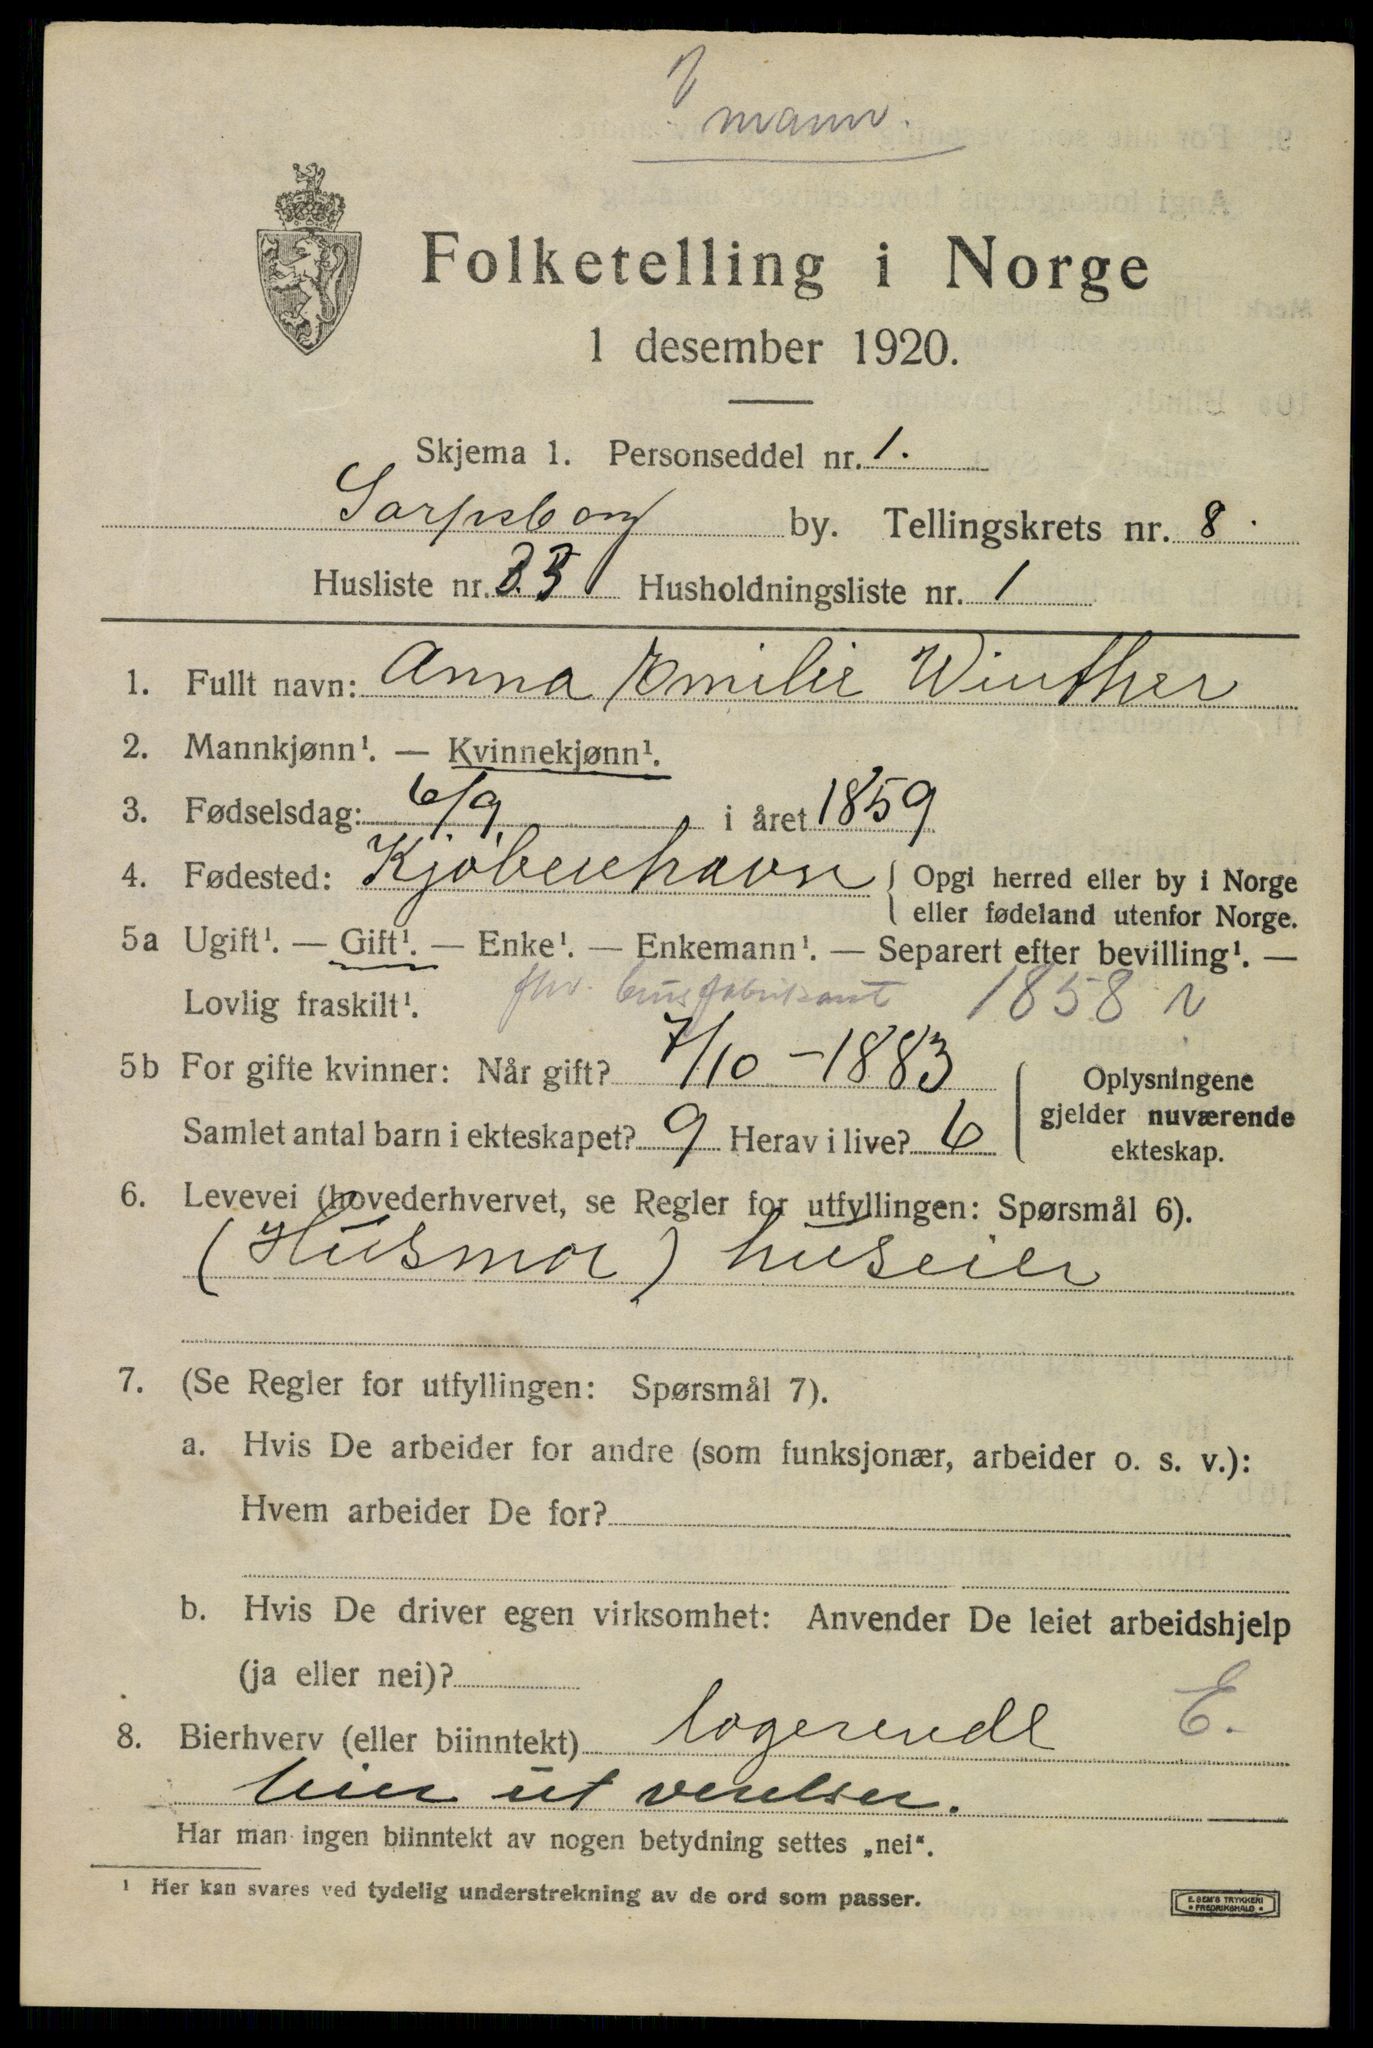 mann.
Folketelling i Norge
1 desember 1920.
Skjema 1. Personseddel nr. 1.
Sarpsborg by. Tellingskrets nr. 8.
Husliste nr. 33 Husholdningsliste nr. 1
1. Fullt navn: Anna Emilie Winther
2. Mannkjønn¹. — Kvinnekjønn¹.
3. Fødselsdag: 6/9 i året 1859
4. Fødested: Kjøbenhavn { Opgi herred eller by i Norge
eller fødeland utenfor Norge.
5a Ugift¹. — Gift¹. — Enke¹. — Enkemann¹. — Separert efter bevilling¹. —
Lovlig fraskilt¹. fhv. brusfabrikant 1858
5b For gifte kvinner: Når gift? 7/10 - 1883
Samlet antal barn i ekteskapet? 9 Herav i live? 6
Oplysningene
gjelder nuværende
ekteskap.
6. Levevei (hovederhvervet, se Regler for utfyllingen: Spørsmål 6).
(Husmor) huseier
7. (Se Regler for utfyllingen: Spørsmål 7).
a. Hvis De arbeider for andre (som funksjonær, arbeider o. s. v.):
Hvem arbeider De for?
b. Hvis De driver egen virksomhet: Anvender De leiet arbeidshjelp
(ja eller nei)?
E.
8. Bierhverv (eller biinntekt) logerende
leier ut værelser.
Har man ingen biinntekt av nogen betydning settes „nei“.
¹ Her kan svares ved tydelig understrekning av de ord som passer.
E. SEM'S TRYKKERI
• FREDRIKSHALD •